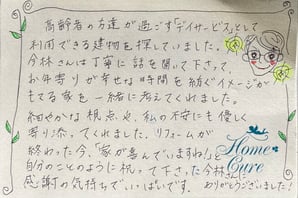 高齢者の方達が過ごす「デイサービス」として
利用できる建物を探していました。
今林さんは丁寧に話を聞いて下さって、
お年寄りが幸せな時間を紡ぐイメージが
もてる家を一緒に考えてくれました。
細やかな視点や、私の不安にも優しく
寄り添ってくれました。リフォームが
終わった今、「家が喜んでいますね!」と
自分のことのように祝って下さった今林さん
感謝の気持ちで、いっぱいです。
ありがとうございました!
Home
Cure